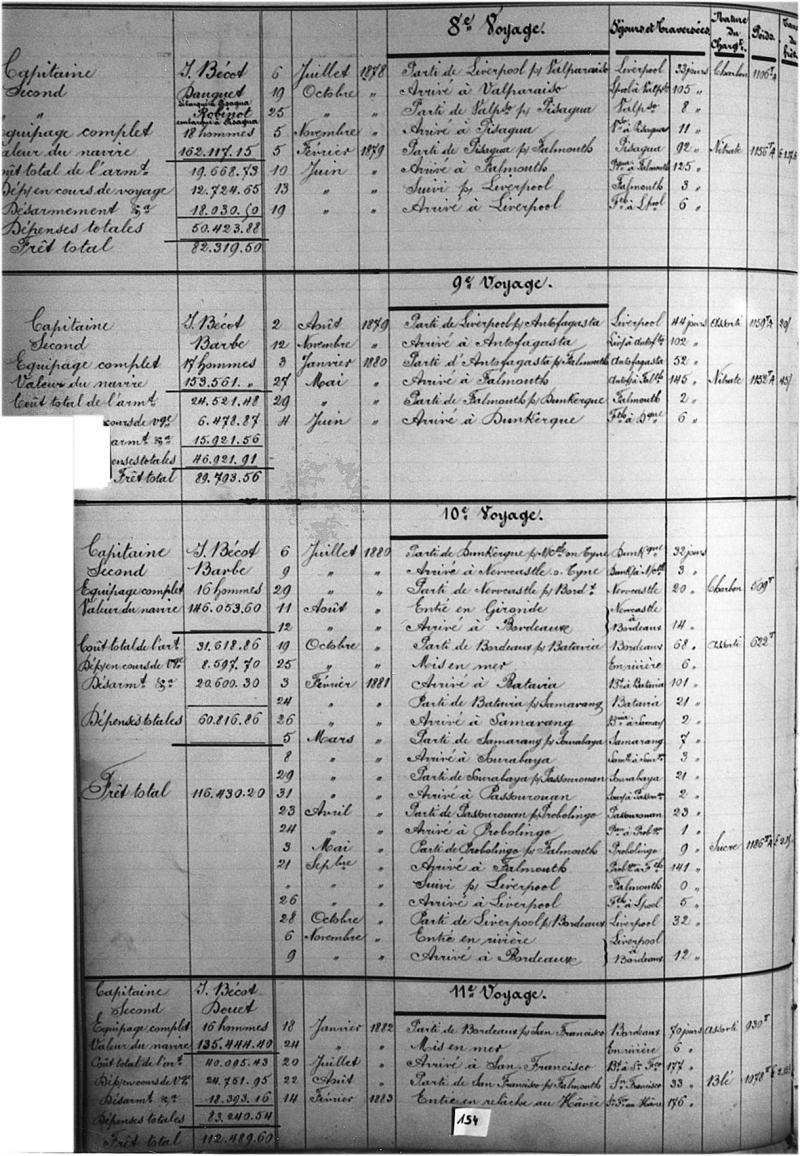 8e Voyage. Séjours et Traversées Nature du Chargt. Poids.
Capitaine J. Bécot 6 Juillet 1878 Parti de Liverpool p/ Valparaiso Liverpool 33 jours Charbon 1106 T
Second Dauguet 19 Octobre „ Arrivé à Valparaiso 105 „
débarqué à Pisagua
„ Robinot 25 „ „ Parti de Valpso p/ Pisagua Valpso 8 „
embarqué à Pisagua
Equipage complet 18 hommes 5 Novembre „ Arrivé à Pisagua 11 „
Valeur du navire 162.117.15 5 Février 1879 Parti de Pisagua p/ Falmouth Pisagua 92 „ Nitrate 1156 T
Coût total de l'armt 19.668.73 10 Juin „ Arrivé à Falmouth 125 „
Dép/ en cours de voyage 12.724.65 13 „ „ Suivi p/ Liverpool Falmouth 3 „
Désarmement &a 18.030.50 19 „ „ Arrivé à Liverpool Fth à Lpool 6 „
Dépenses totales 50.423.88
Frêt total 82.319.50
9e Voyage.
Capitaine J. Bécot 2 Août 1879 Parti de Liverpool p/ Antofagasta Liverpool 44 jours Assorti
Second Barbe 12 Novembre „ Arrivé à Antofagasta 102 „
Equipage complet 17 hommes 3 Janvier 1880 Parti d'Antofagasta p/ Falmouth Antofagasta 52 „
Valeur du navire 153.561. „ 27 Mai „ Arrivé à Falmouth 145 „ Nitrate 1152 T
Coût total de l'armt 24.521.48 29 „ „ Parti de Falmouth p/ Bunkerque Falmouth 2 „
cours de vge 6.478.87 4 Juin „ Arrivé à Bunkerque Fth à Dque 6 „
armt &a 15.921.56
enses totales 46.921.91
Frêt total 89.793.56
10e Voyage.
Capitaine J. Bécot 6 Juillet 1880 Parti de Dunkerque p/ N/Ctle on Tyne Dunkque 32 jours
Second Barbe 9 „ „ Arrivé à Newcastle o. Tyne 3 „
Equipage complet 16 hommes 29 „ „ Parti de Newcastle p/ Bordx Newcastle 20 „ Charbon 509 T
Valeur du navire 146.053.60 11 Août „ Entré en Gironde Newcastle
12 „ „ Arrivé à Bordeaux à Bordeaux 14 „
Coût total de l'art 31.618.86 19 Octobre „ Parti de Bordeaux p/ Batavia Bordeaux 68 „ Assorti 622 T
Dép/ en cours de vge 8.597.70 25 „ „ Mis en mer En rivière 6 „
Désarmt &a 20.600.30 3 Février 1881 Arrivé à Batavia Bx à Batavia 101 „
24 „ „ Parti de Batavia p/ Samarang Batavia 21 „
Dépenses totales 60.816.86 26 „ „ Arrivé à Samarang 2 „
5 Mars „ Parti de Samarang p/ Sourabaya Samarang 7 „
8 „ „ Arrivé à Sourabaya 3 „
29 „ „ Parti de Sourabaya p/ Passourouan Sourabaya 21 „
Frêt total 116.430.20 31 „ „ Arrivé à Passourouan 2 „
23 Avril „ Parti de Passourouan p/ Probolingo Passourouan 23 „
24 „ „ Arrivé à Probolingo 1 „
3 Mai „ Parti de Probolingo p/ Falmouth Probolingo 9 „ Sucre 1186 T
21 Sepbre „ Arrivé à Falmouth 141 „
„ „ „ Suivi p/ Liverpool Falmouth 0 „
26 „ „ Arrivé à Liverpool Fth à Lpool 5 „
28 Octobre „ Parti de Liverpool p/ Bordeaux Liverpool 32 „
6 Novembre „ Entré en rivière Liverpool
9 „ „ Arrivé à Bordeaux à Bordeaux 12 „
11e Voyage.
Capitaine J. Bécot
Second Douet
Equipage complet 16 hommes 18 Janvier 1882 Parti de Bordeaux p/ San Francisco Bordeaux 70 jours Assorti 930 T
Valeur du navire 135.444.40 24 „ „ Mis en mer En rivière 6 „
Coût total de l'art 40.095.43 20 Juillet „ Arrivé à San-Francisco 177 „
Dép/ en cours de vge 24.751.95 22 Août „ Parti de San Francisco p/ Falmouth Sn Francisco 33 „ Blé 1078 T
Désarmt &a 18.393.16 14 Février 1883 Entré en relâche au Hâvre 176 „
Dépenses totales 83.240.54
Frêt total 112.489.60
154